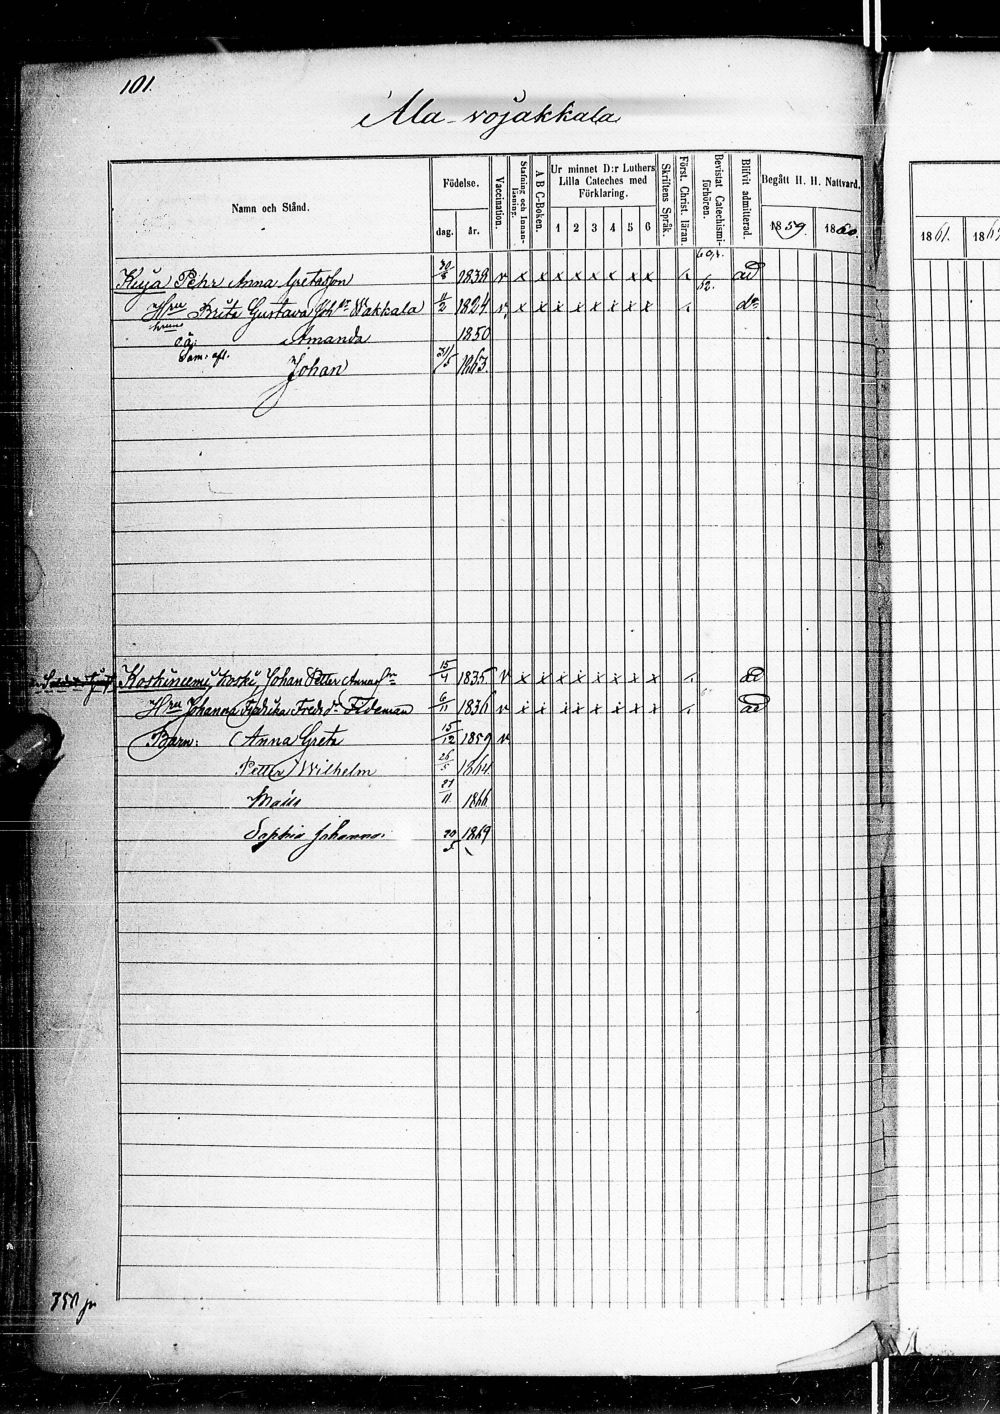 101.
Ala-vojakkala
Namn och Stånd.
Födelse.
dag.
år.
Vaccination.
Stafning och Innan-läsning.
A B C-Boken.
Ur minnet D:r Luthers
Lilla Cateches med
Förklaring.
1 2 3 4 5 6
Skriftens Språk.
Först. Christ. läran.
Bevistat Catechismi-förhören.
Blifvit admitterad.
Begått H. H. Nattvard.
1859. 1860.
1861.
Kuja Pehr Anna Gretasson 1838 v x x x x x x x x ad
Hru Brita Gustava Joh dr Wakkala 11/2 1824 v x x x x x x x x do
o ä. Amanda 1850
Johan 1863.
Koskiniemi, Johan Petter 15/4 1835 v x x x x x x x x ad
Hru Johanna Fredrika Fredsdr 6/11 1836 v x x x x x x x x ad
Barn: Anna Greta 15/12 1859 v
Petter Wilhelm 26/5 1864.
21/11 1866
Sophia Johanna. 20/5 1869